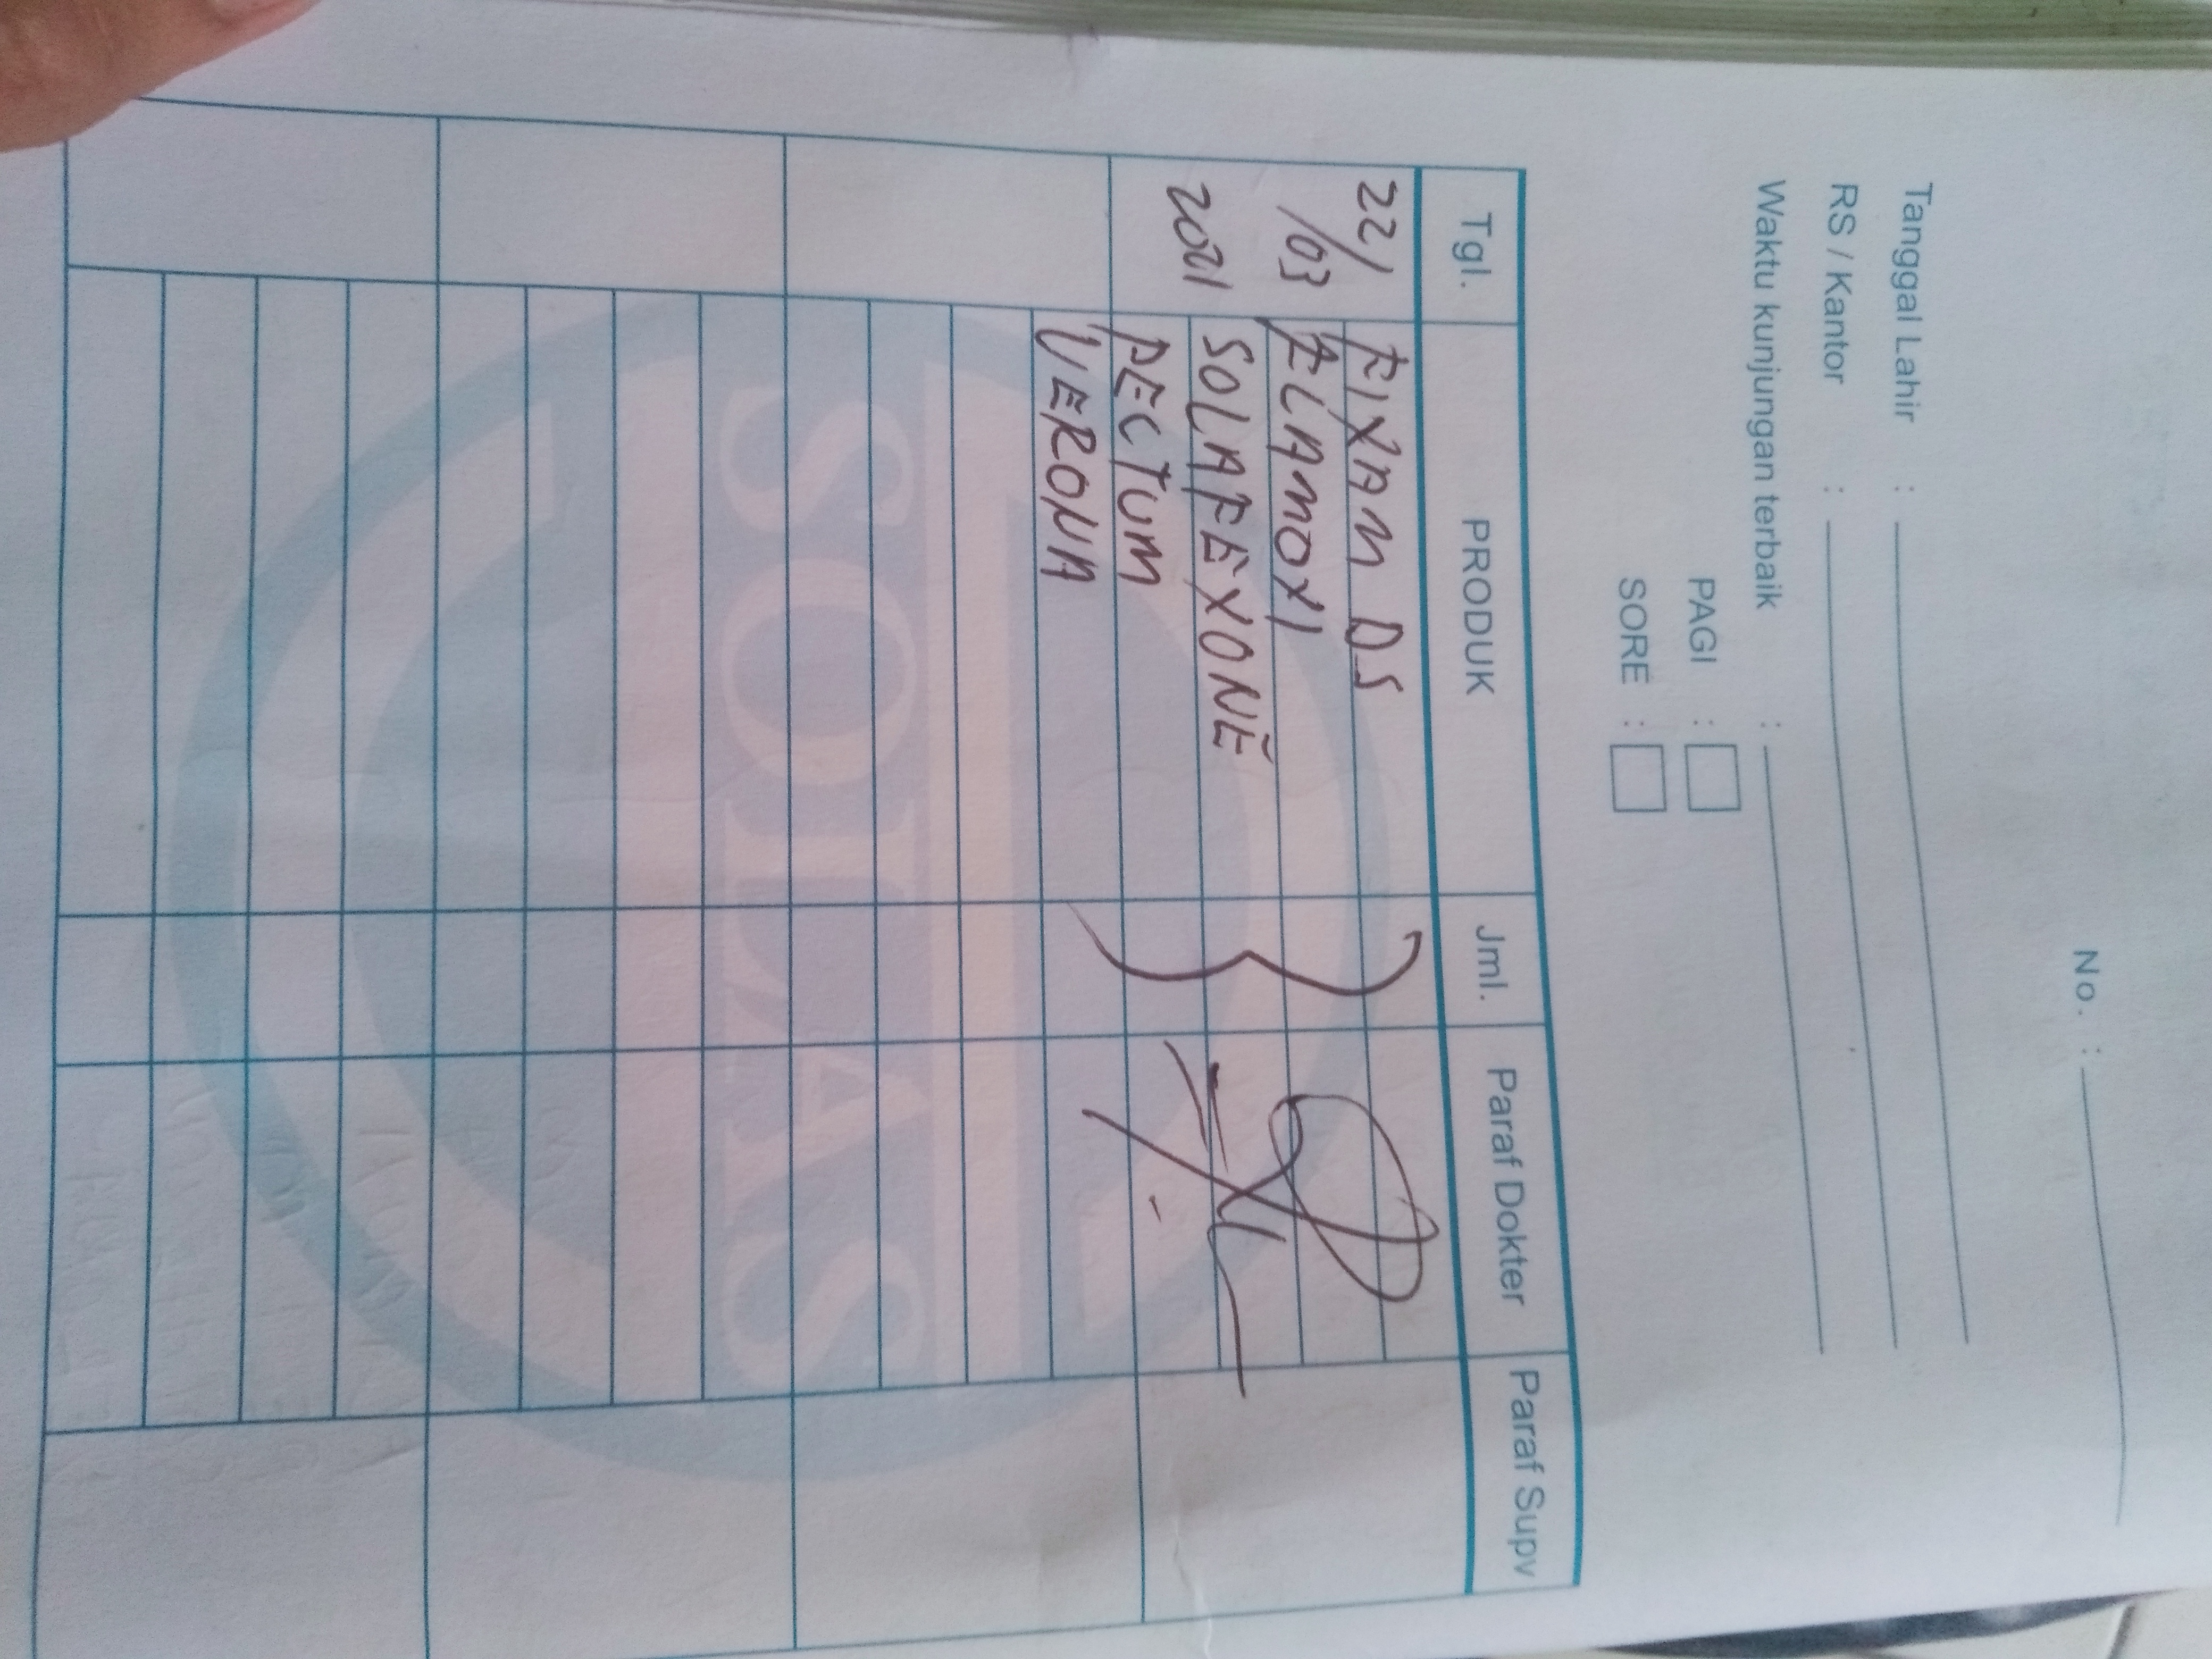 No. :
Tanggal Lahir :
RS / Kantor :
Waktu kunjungan terbaik :
PAGI :
SORE :
Tgl. PRODUK Jml. Paraf Dokter Paraf Supv
22/ FIXAM DS
/03 ELAMOXI
2021 SOLAFEXONE
PECTUM
VERONA
SOLAS